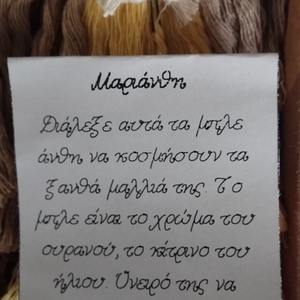 Μαριάνθη
Διάλεξε αυτά τα μπλε
άνθη να κοσμήσουν τα
ξανθά μαλλιά της. Το
μπλε είναι το χρώμα του
ουρανού, το κίτρινο του
ήλιου. Όνειρό της να